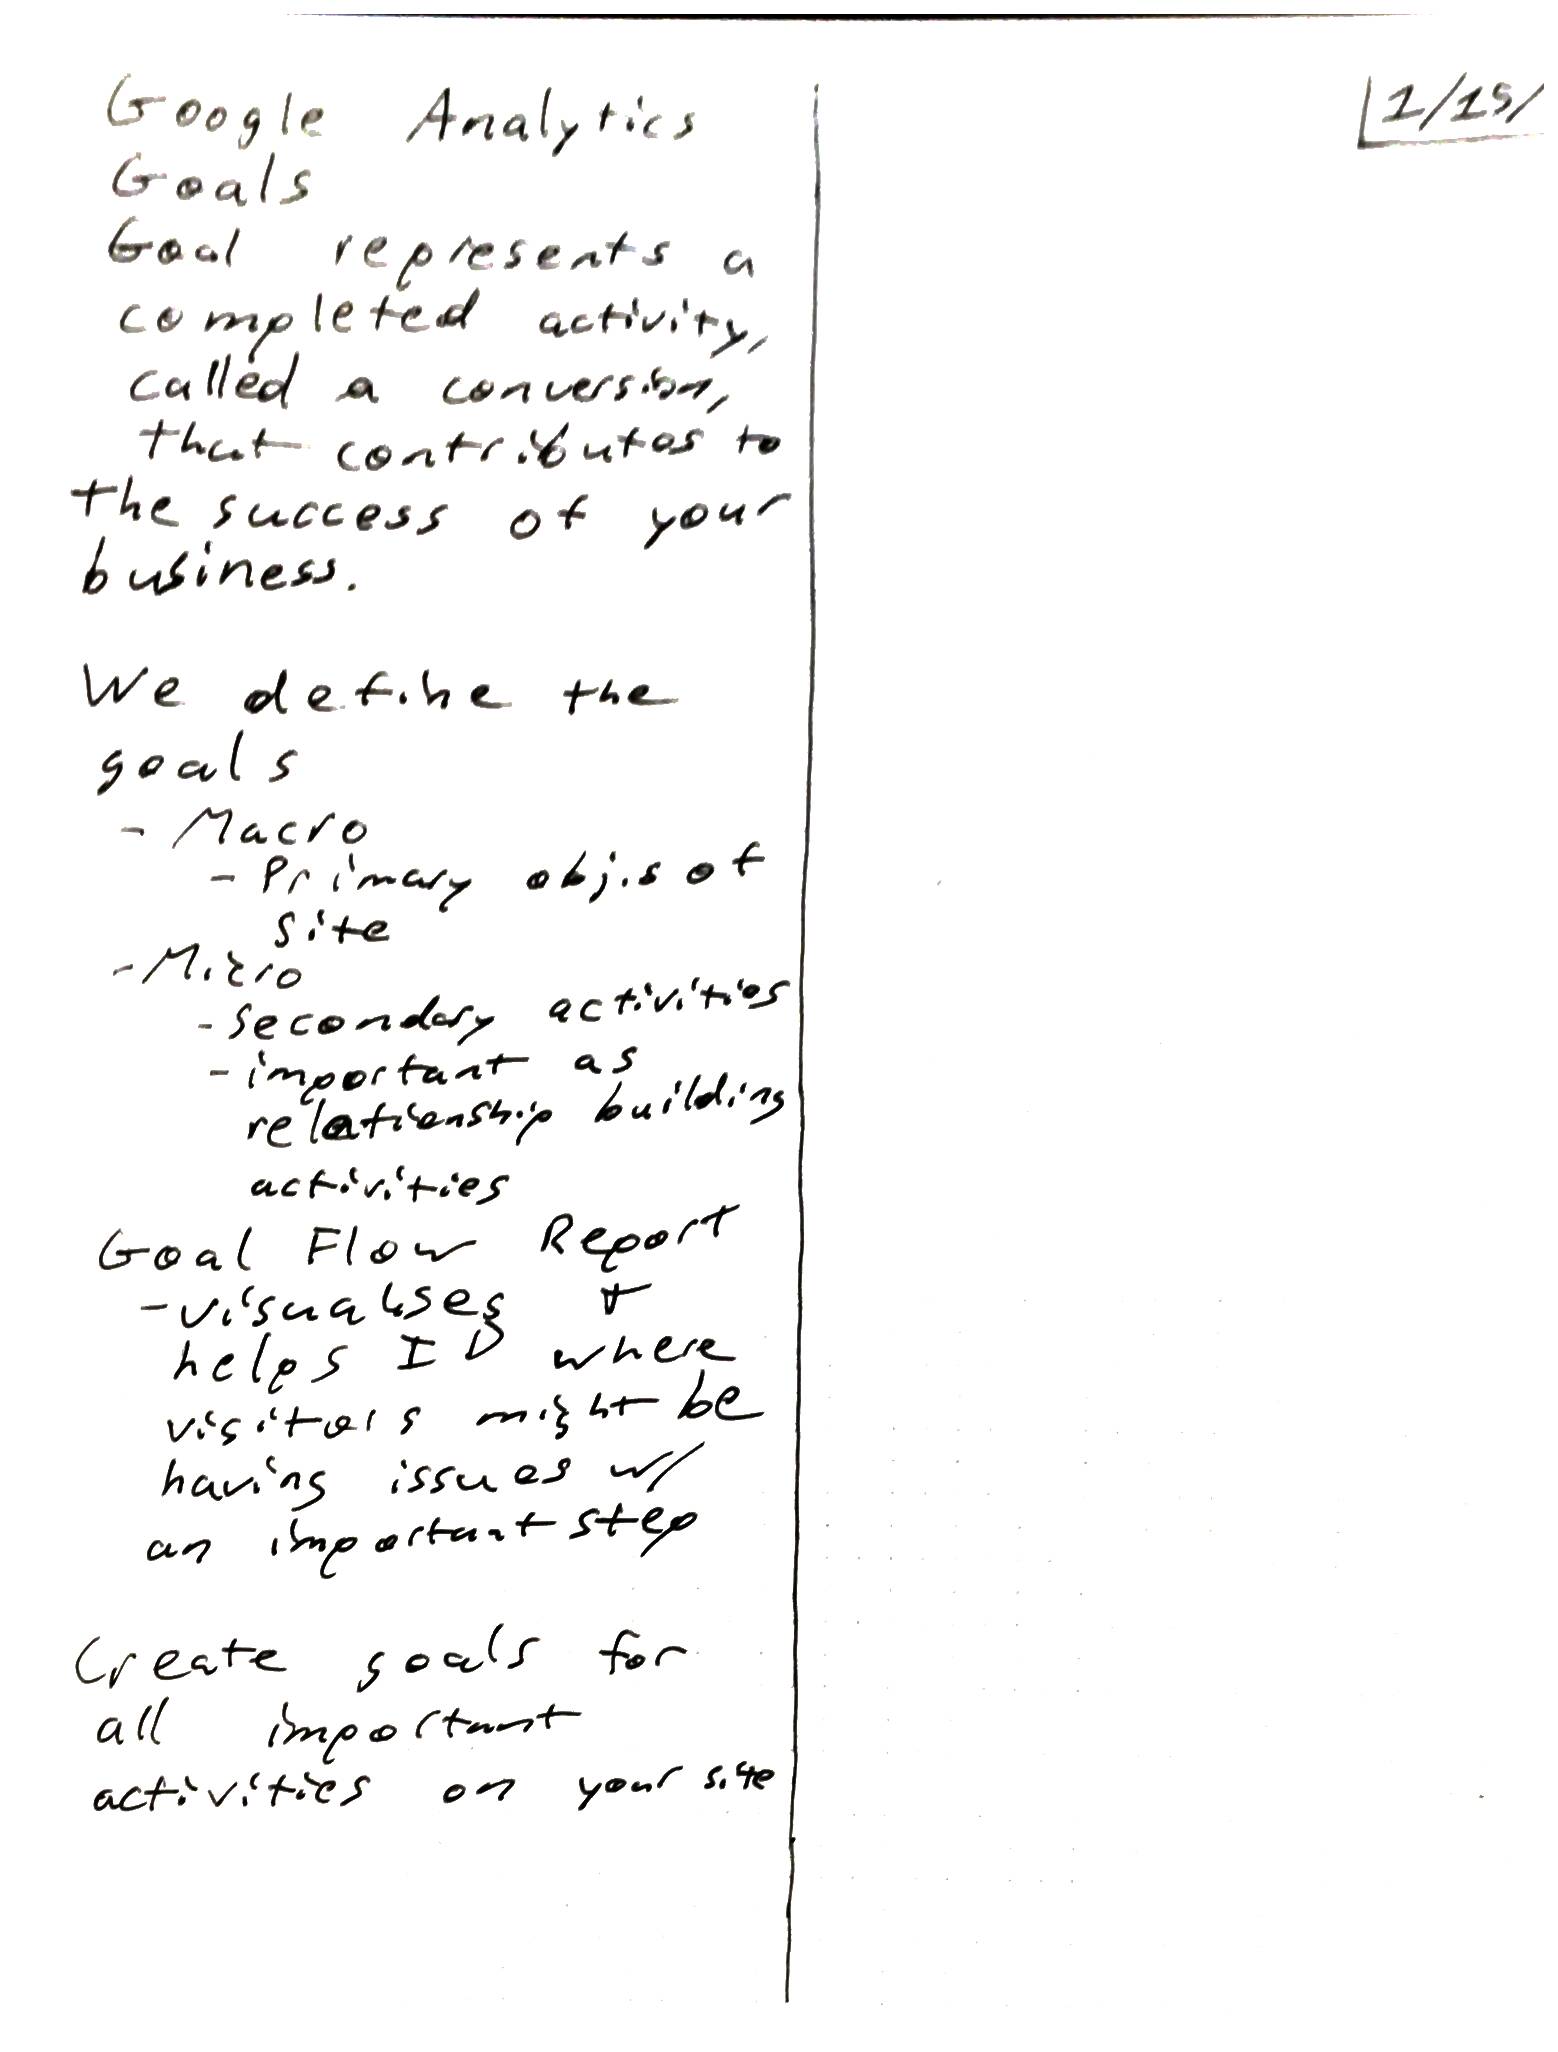 Google Analytics
Goals
Goal represents a
completed activity,
called a conversion,
that contributes to
the success of your
business.
We define the
goals
- Macro
- Primary obj.s of
site
- Micro
- Secondary activities
- important as
relationship building
activities
Goal Flow Report
- visualises +
helps ID where
visitors might be
having issues w/
an important step
Create goals for
all important
activities on your site
1/15/